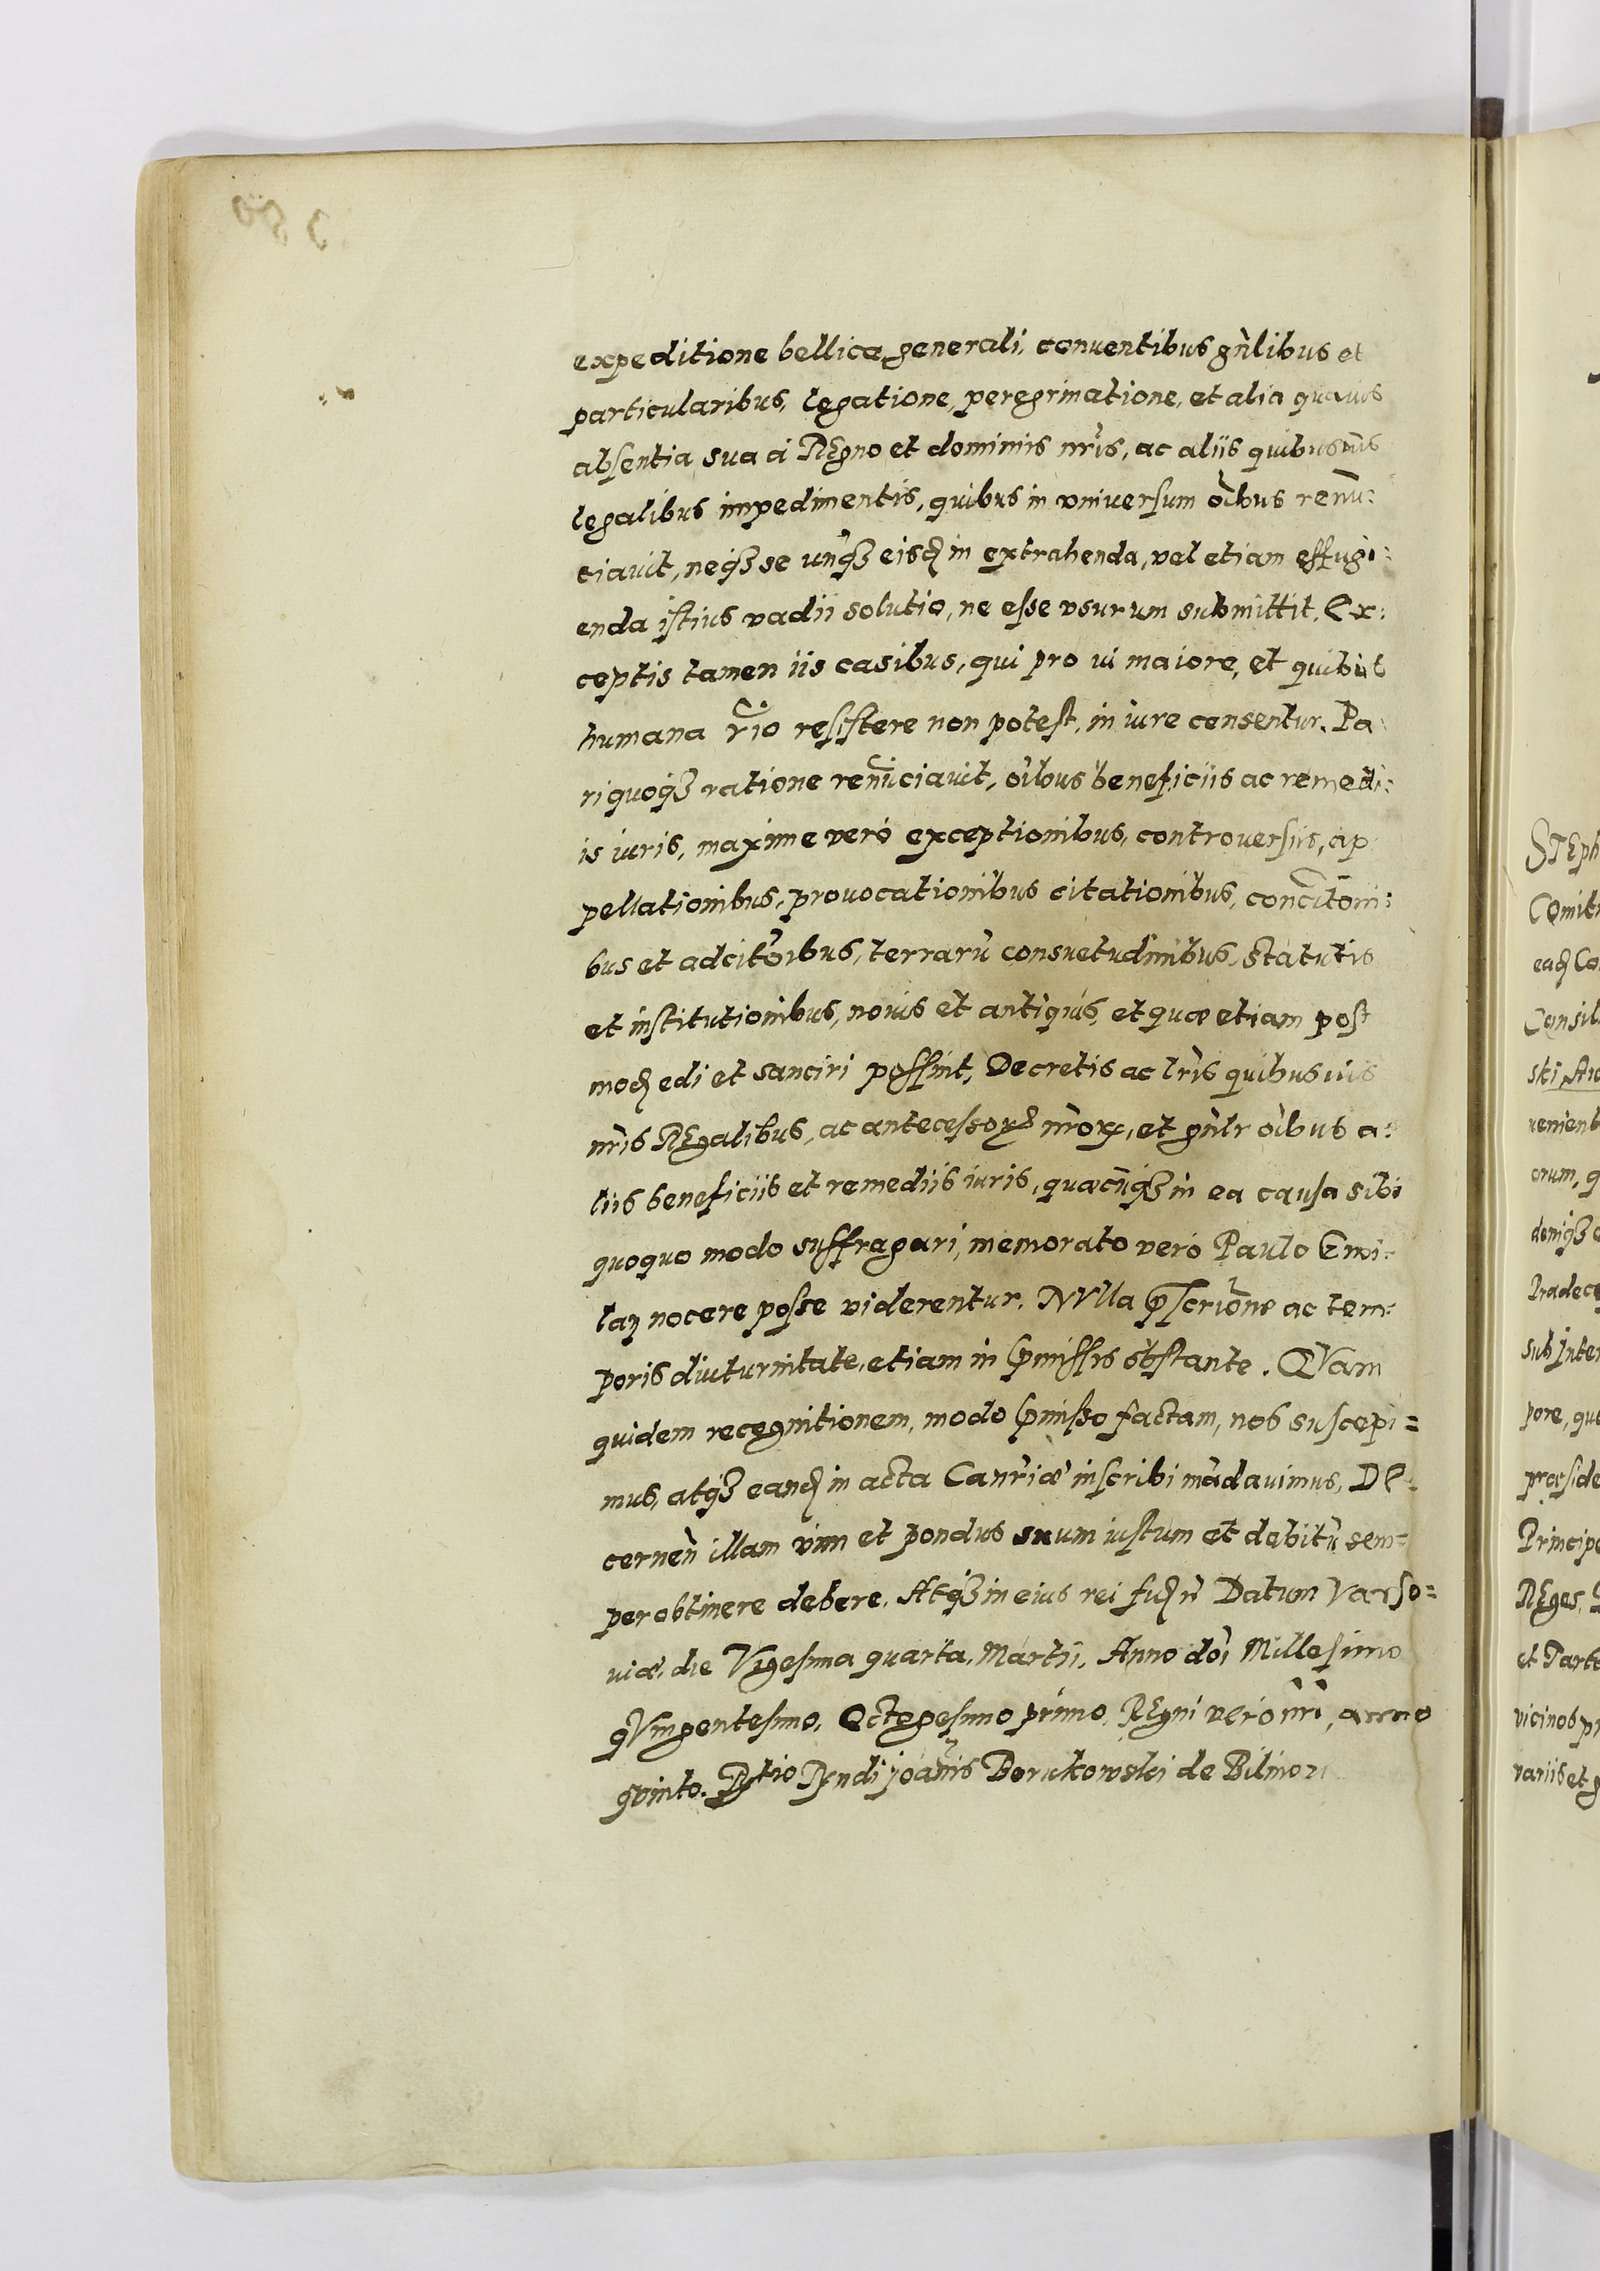 expeditione bellica, generali, conuentibus gñlibus et
particularibus, legatione, peregrinatione, et alia quauis
absentia sua á REgno et dominiis nr̃is, ac aliis quibusuis
legalibus impedimentis, quibus in vniuersum oĩbus renũ:
tiauit, neqꝫ se unqꝫ eisdẽ in extrahenda, vel etiam effugi:
enda istius vadii solutio, ne esse vsurum submittit, Ex:
ceptis tamen iis casibus, qui pro ui maiore, et quibus
humana rĩo resistere non potest, in iure censentur. Pa
ri quoqꝫ ratione renũciauit, oĩbus beneficiis ac remedi:
is iuris, maxime veró exceptionibus, controuersiis, ap
pellationibus, prouocationibus citationibus, concitõni:
bus et adcitõibus, terrarũ consuetudinibus, statutis
et institutionibus, nouis et antiquis, et quæ etiam post
modũ edi et sanciri possint, Decretis ac lr̃is quibusuis
nr̃is REgalibus, ac antecessorꝝ nr̃orꝝ, et gñlr oĩbus a:
liis beneficiis et remediis iuris, quæcũqꝫ in ea causa sibi
quoquo modo suffragari, memorato veró Paulo Emi:
lay nocere posse viderentur. NVlla pr̃scriõne ac tem:
poris diuturnitate, etiam in pr̃missis obstante. QVam
quidem recognitionem, modo pr̃misso factam, nos suscepi=
mus, atqꝫ eandẽ in acta Canr̃iæ inscribi mãdauimus, DE:
cernẽn illam vim et pondus suum iustum et debitũ sem=
per obtinere debere. Atqꝫ in eius rei fidẽ ñ Datum Varso=
uiæ, die Vigesima quarta, Martii, Anno dõi Millesimo
qVingentesimo, Octogesimo primo, REgni veró nr̃i, anno
qVinto. Rtio Rndi joãnis Borukowski de Bilino
380
STEph
Comit
eadẽ Co
Consil
ski
uenient
orum, q
deniqꝫ
Prædece
sub inter
pore, que
præside
Principe
REges,
et Tart
vicinos pr
variis et